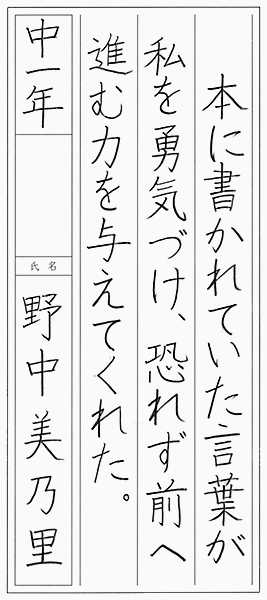 本に書かれていた言葉が
私を勇気づけ、恐れず前へ
進む力を与えてくれた。
中一年
氏名
野中美乃里